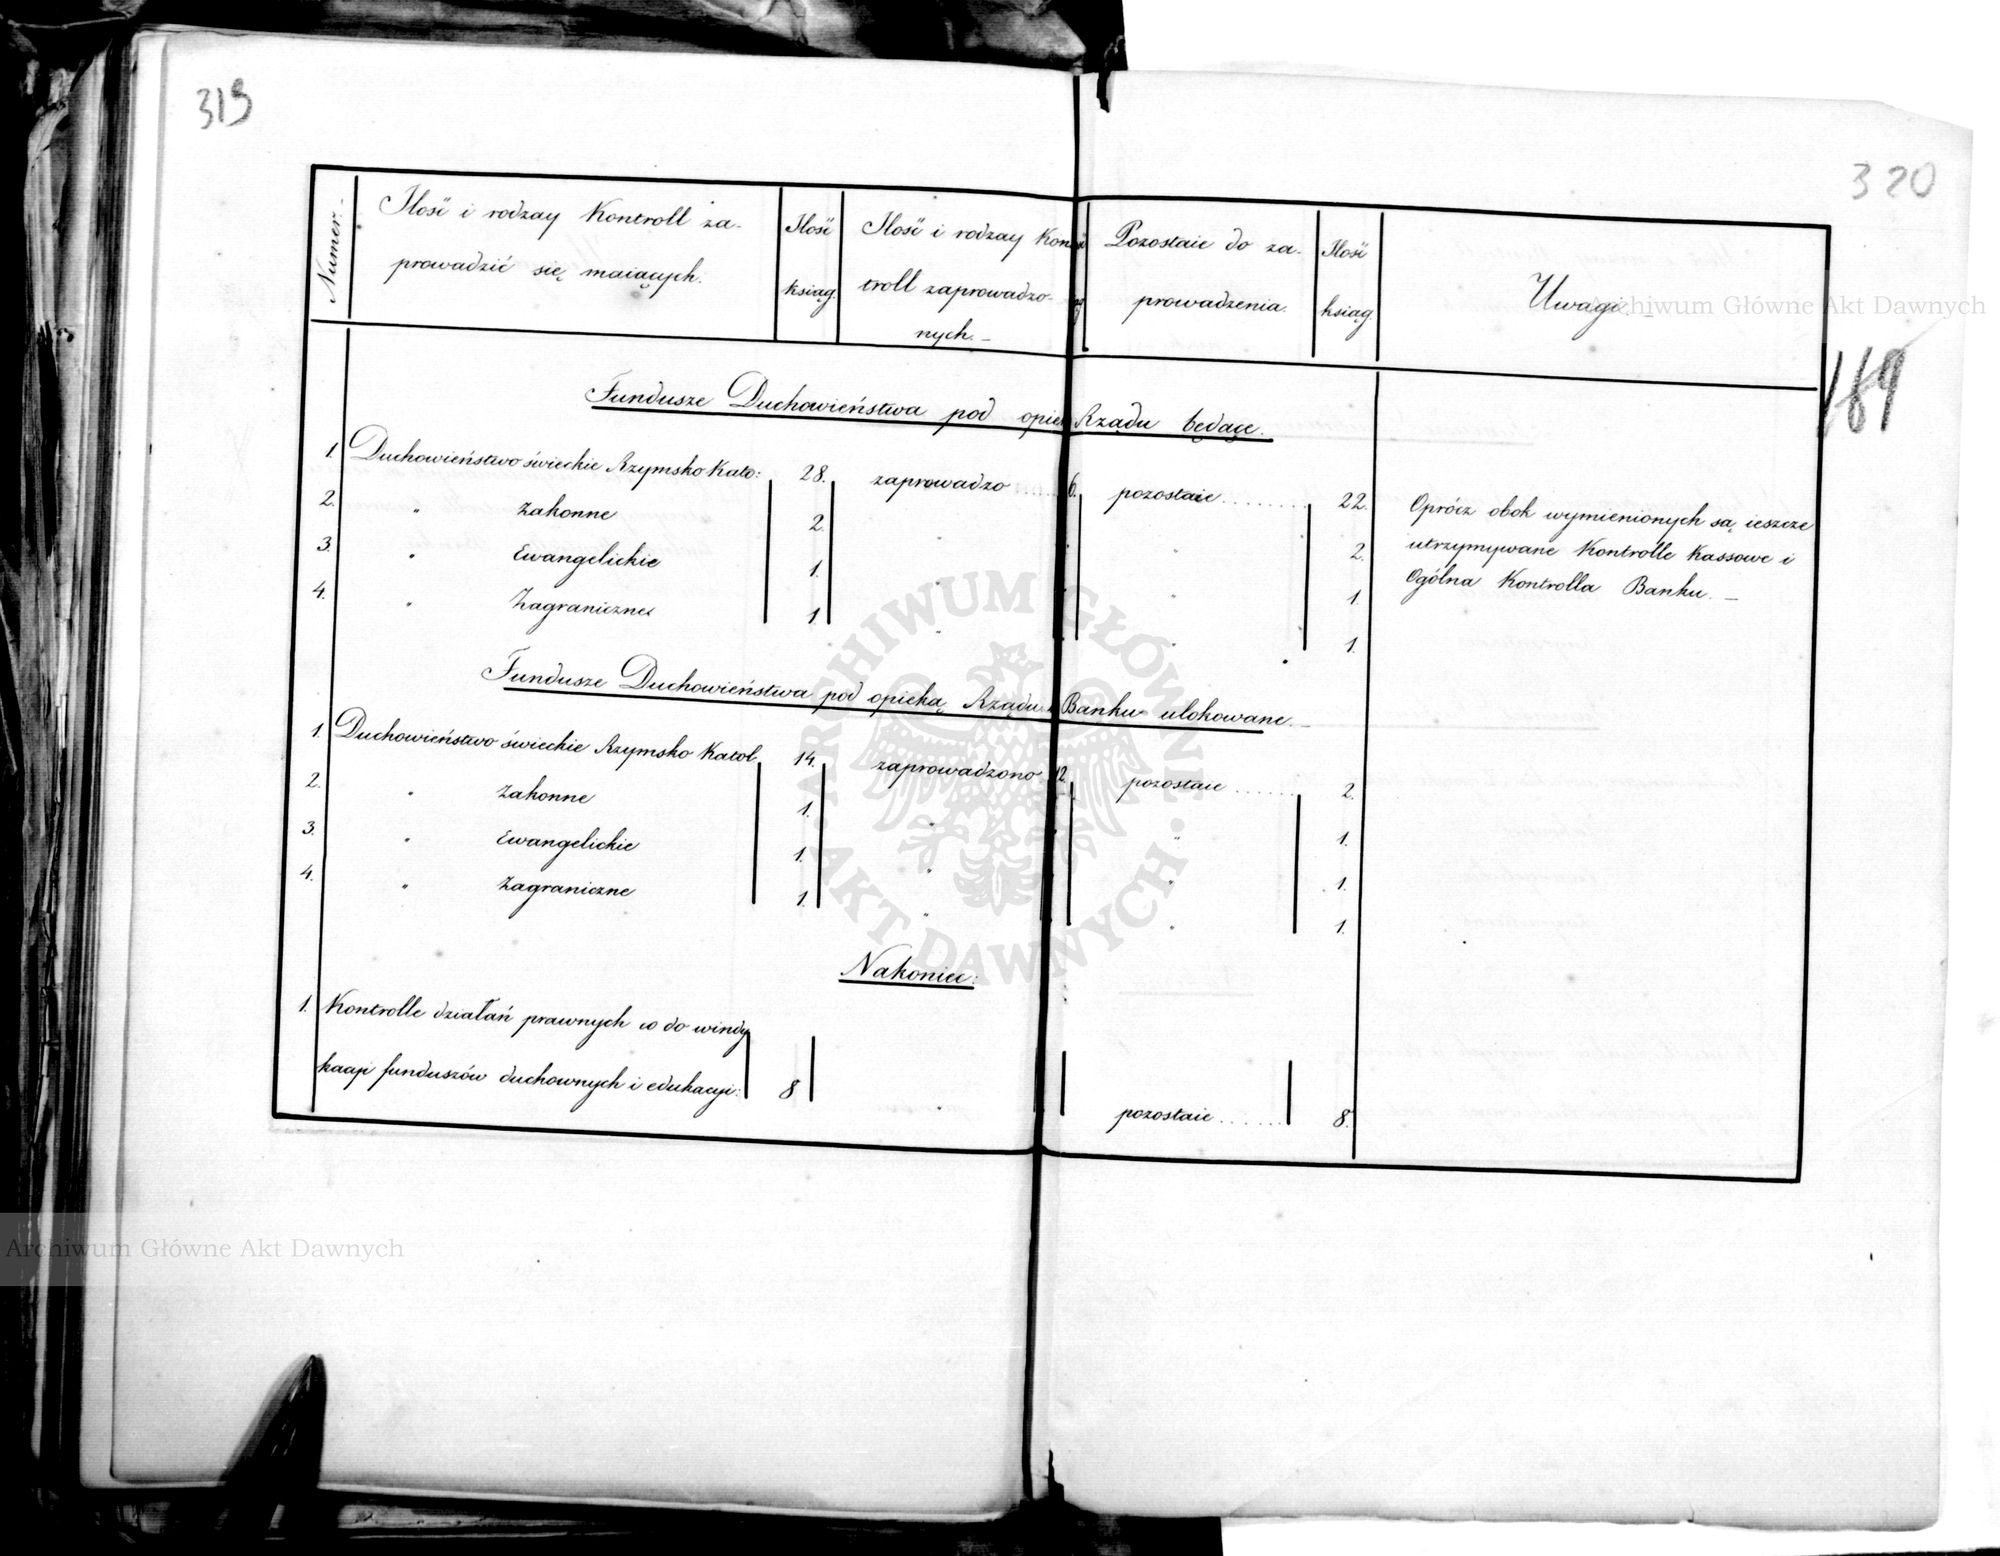 319
320
Numer.
Ilość i rodzay Kontroll za-
prowadzić się maiących.
Ilość
ksiąg.
Ilość i rodzay Kon
troll zaprowadzo-
nych. –
Pozostaie do za-
prowadzenia.
Ilość
ksiąg.
Uwagi
169
Fundusze Duchowieństwa pod opie Rządu będące.
1. Duchowieństwo świeckie Rzymsko Kato: 28. zaprowadzo .... 6. pozostaie ........ 22.
2. " Zakonne 2. " 2.
3. " Ewangelickie 1. " " 1.
4. " Zagraniczne 1. " " 1.
Oprócz obok wymienionych są ieszcze
utrzymywane Kontrolle Kassowe i
Ogólna Kontrolla Banku. –
Fundusze Duchowieństwa pod opieką Rządu Banku ulokowane. –
1. Duchowieństwo świeckie Rzymsko Katol 14. zaprowadzono 12. pozostaie ...... 2.
2. " Zakonne 1. " " 1.
3. " Ewangelickie 1. " " 1.
4. " Zagraniczne 1. " " 1.
Nakoniec:
1. Kontrolle działań prawnych co do windy
kacyi funduszów duchownych i edukacyi: 8 pozostaie ...... 8.
Archiwum Główne Akt Dawnych
Archiwum Główne Akt Dawnych
ARCHIWUM GŁÓWNE
AKT DAWNYCH